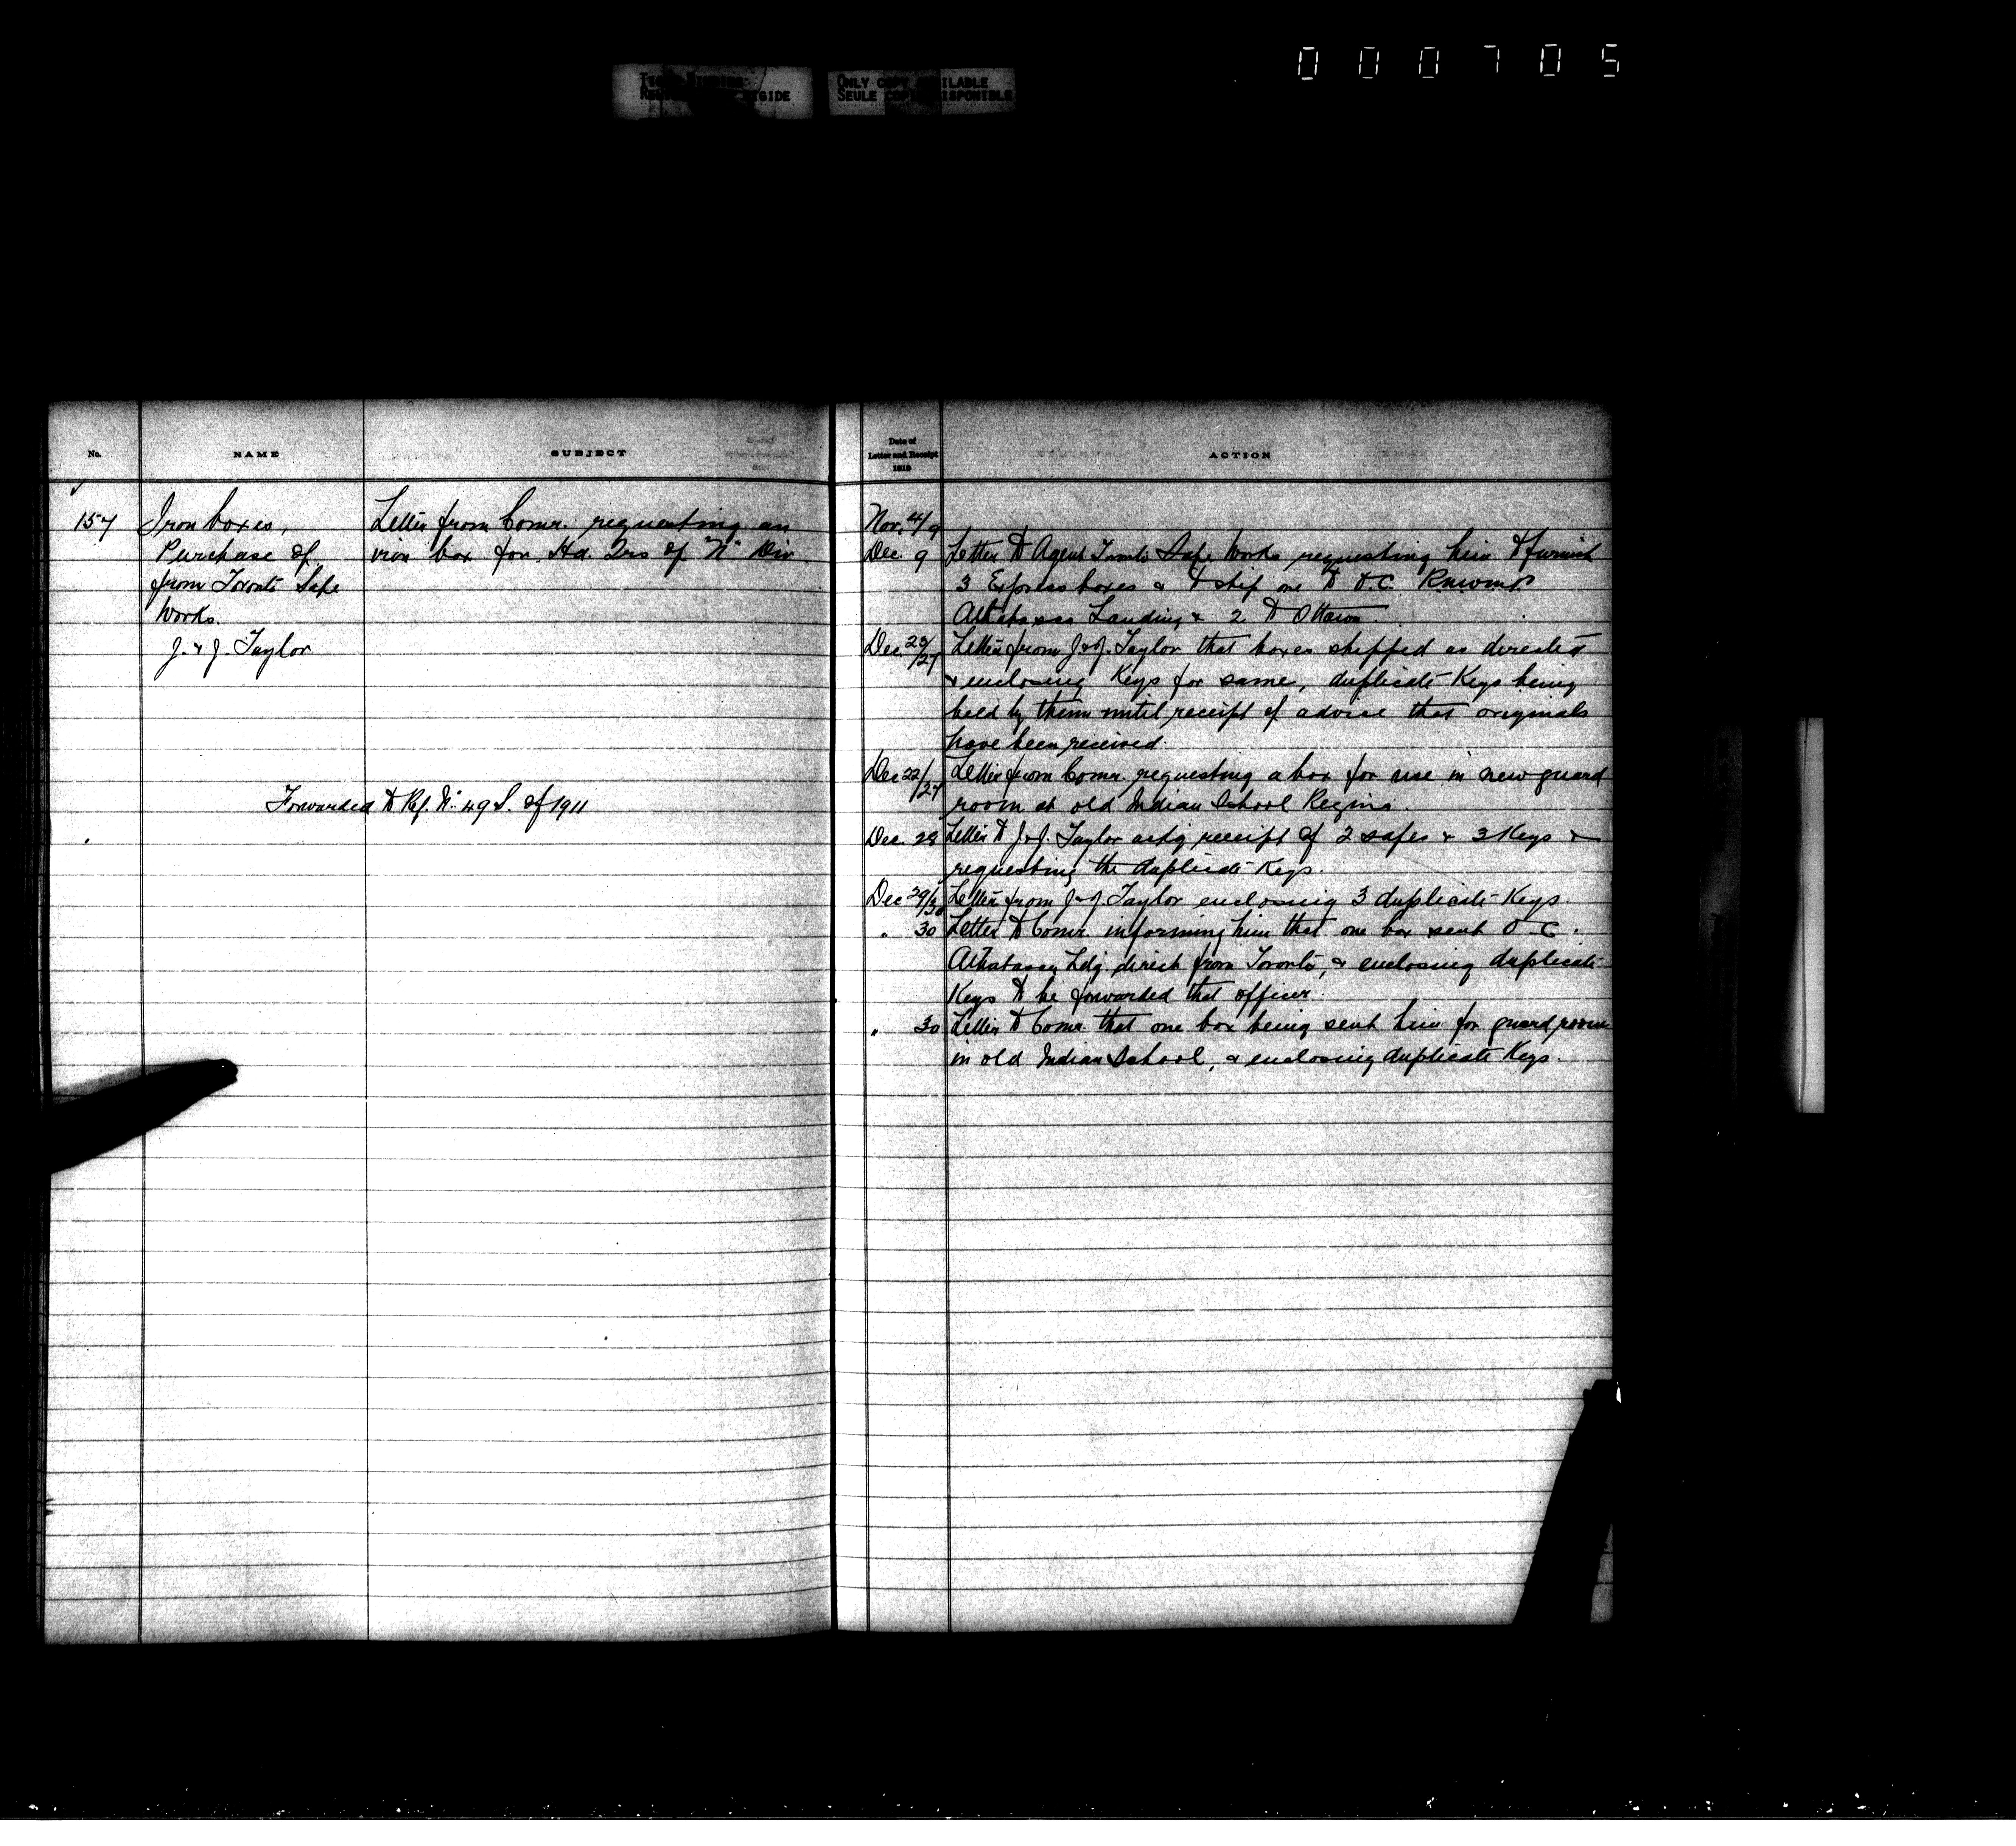 000705
ONLY COPY AVAILABLE
SEULE COPIE DISPONIBLE
No. NAME SUBJECT
157 Iron boxes, Letter from Comr. requesting an
Purchase of iron box for Hd. Qrs of "N" Div
from Toronto Safe
Works.
J. & J. Taylor
Forwarded to Ref. No. 49 S. of 1911
Date of
Letter and Receipt
1910
ACTION
Nov. 4/9
Dec. 9 Letter to Agent Safe Works requesting him to furnish
3 Express boxes & to ship one to O.C. R.N.W.M.P.
Athabasca Landing & 2 to Ottawa.
Dec. 23/27 Letter from J. & J. Taylor that boxes shipped as directed
& enclosing Keys for same, duplicate Keys being
held by them until receipt of advise that originals
have been received.
Dec 22/27 Letter from Comr. requesting a box for use in new guard
room at old Indian School Regina.
Dec. 28 Letter to J. & J. Taylor ackg receipt of 2 safes & 3 Keys &
requesting the duplicate Keys.
Dec 29/30 Letter from J. & J. Taylor enclosing 3 duplicate Keys.
" 30 Letter to Comr. informing him that one box sent O.C.
Athabasca Ldg. direct from Toronto, & enclosing duplicate
Keys to be forwarded that officer.
" 30 Letter to Comr. that one box being sent him for guard room
in old Indian School, & enclosing duplicate Keys.